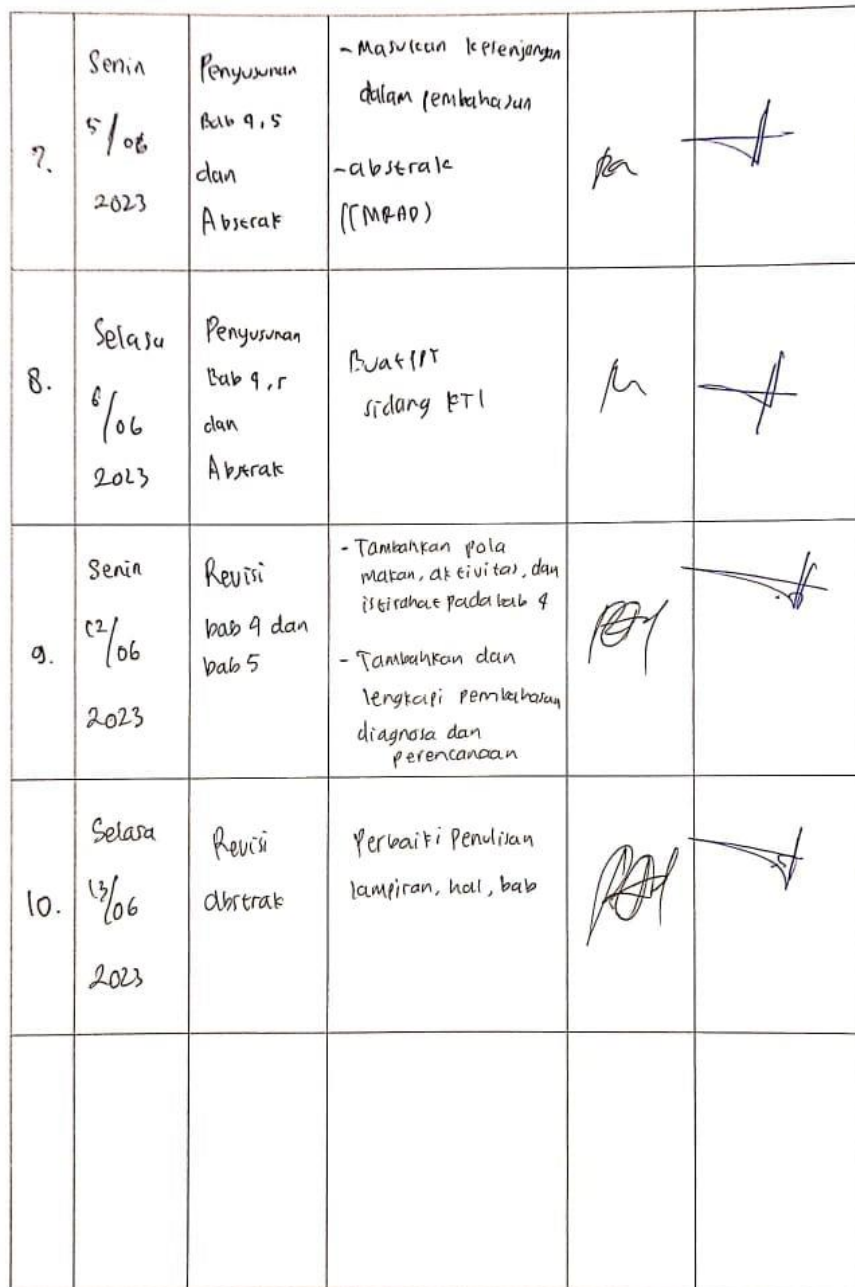 7.
Senin
5/06
2023
Penyusunan
Bab 4,5
dan
Abstrak
- Masukan kesenjangan
dalam pembahasan
- abstrak
(IMRAD)
8.
Selasa
6/06
2023
Penyusunan
Bab 4,5
dan
Abstrak
Buat PPT
sidang KTI
9.
Senin
12/06
2023
Revisi
bab 4 dan
bab 5
- Tambahkan pola
makan, aktivitas, dan
istirahat pada bab 4
- Tambahkan dan
lengkapi pembahasan
diagnosa dan
perencanaan
10.
Selasa
13/06
2023
Revisi
abstrak
Perbaiki Penulisan
lampiran, hal, bab